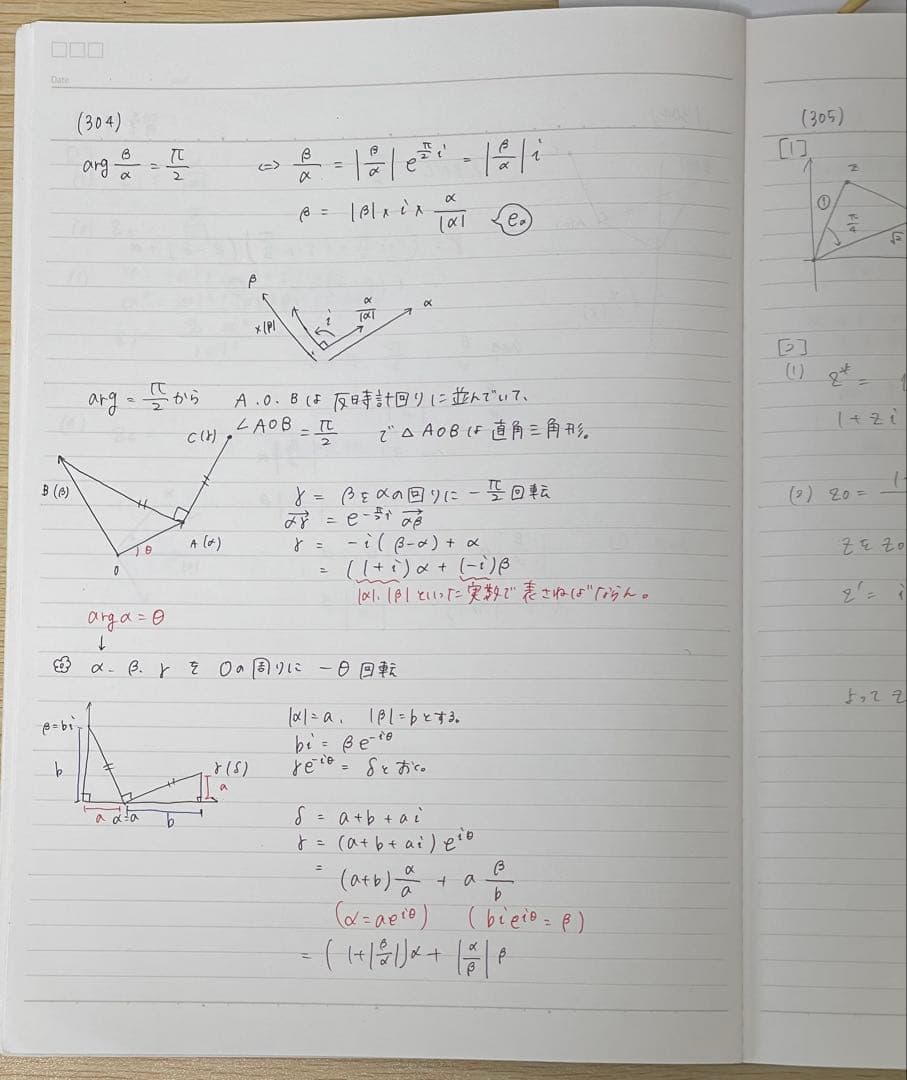 Date
(304)
arg β/α = π/2 ⇔ β/α = |β/α| e^{π/2 i} = |β/α| i
β = |β| × i × α/|α|
β
×|β|
i
α/|α|
α
arg = π/2 から A.O.Bは反時計回りに並んでいて、
∠AOB = π/2 で△AOBは直角三角形。
C(γ)
B(β)
A(α)
θ
O
γ = βをαの回りに -π/2 回転
αγ→ = e^{-π/2 i} αβ→
γ = -i(β-α) + α
= (1+i)α + (-i)β
|α|、|β|といった実数で表さねばならん。
arg α = θ
↓
α、β、γ を Oの周りに -θ 回転
|α| = a、 |β| = b とする。
bi = βe^{-iθ}
γe^{-iθ} = δ とおく。
β=bi
b
γ(δ)
a
a α=a b
δ = a+b+ai
γ = (a+b+ai)e^{iθ}
= (a+b) α/a + a β/b
(α=ae^{iθ}) (bie^{iθ}=β)
= (1+|β/α|)α + |α/β| β
(305)
[1]
z
①
π/4
√2
[2]
(1) z* =
1+zi
(2) z0 =
zをz0
z' = i
よってz